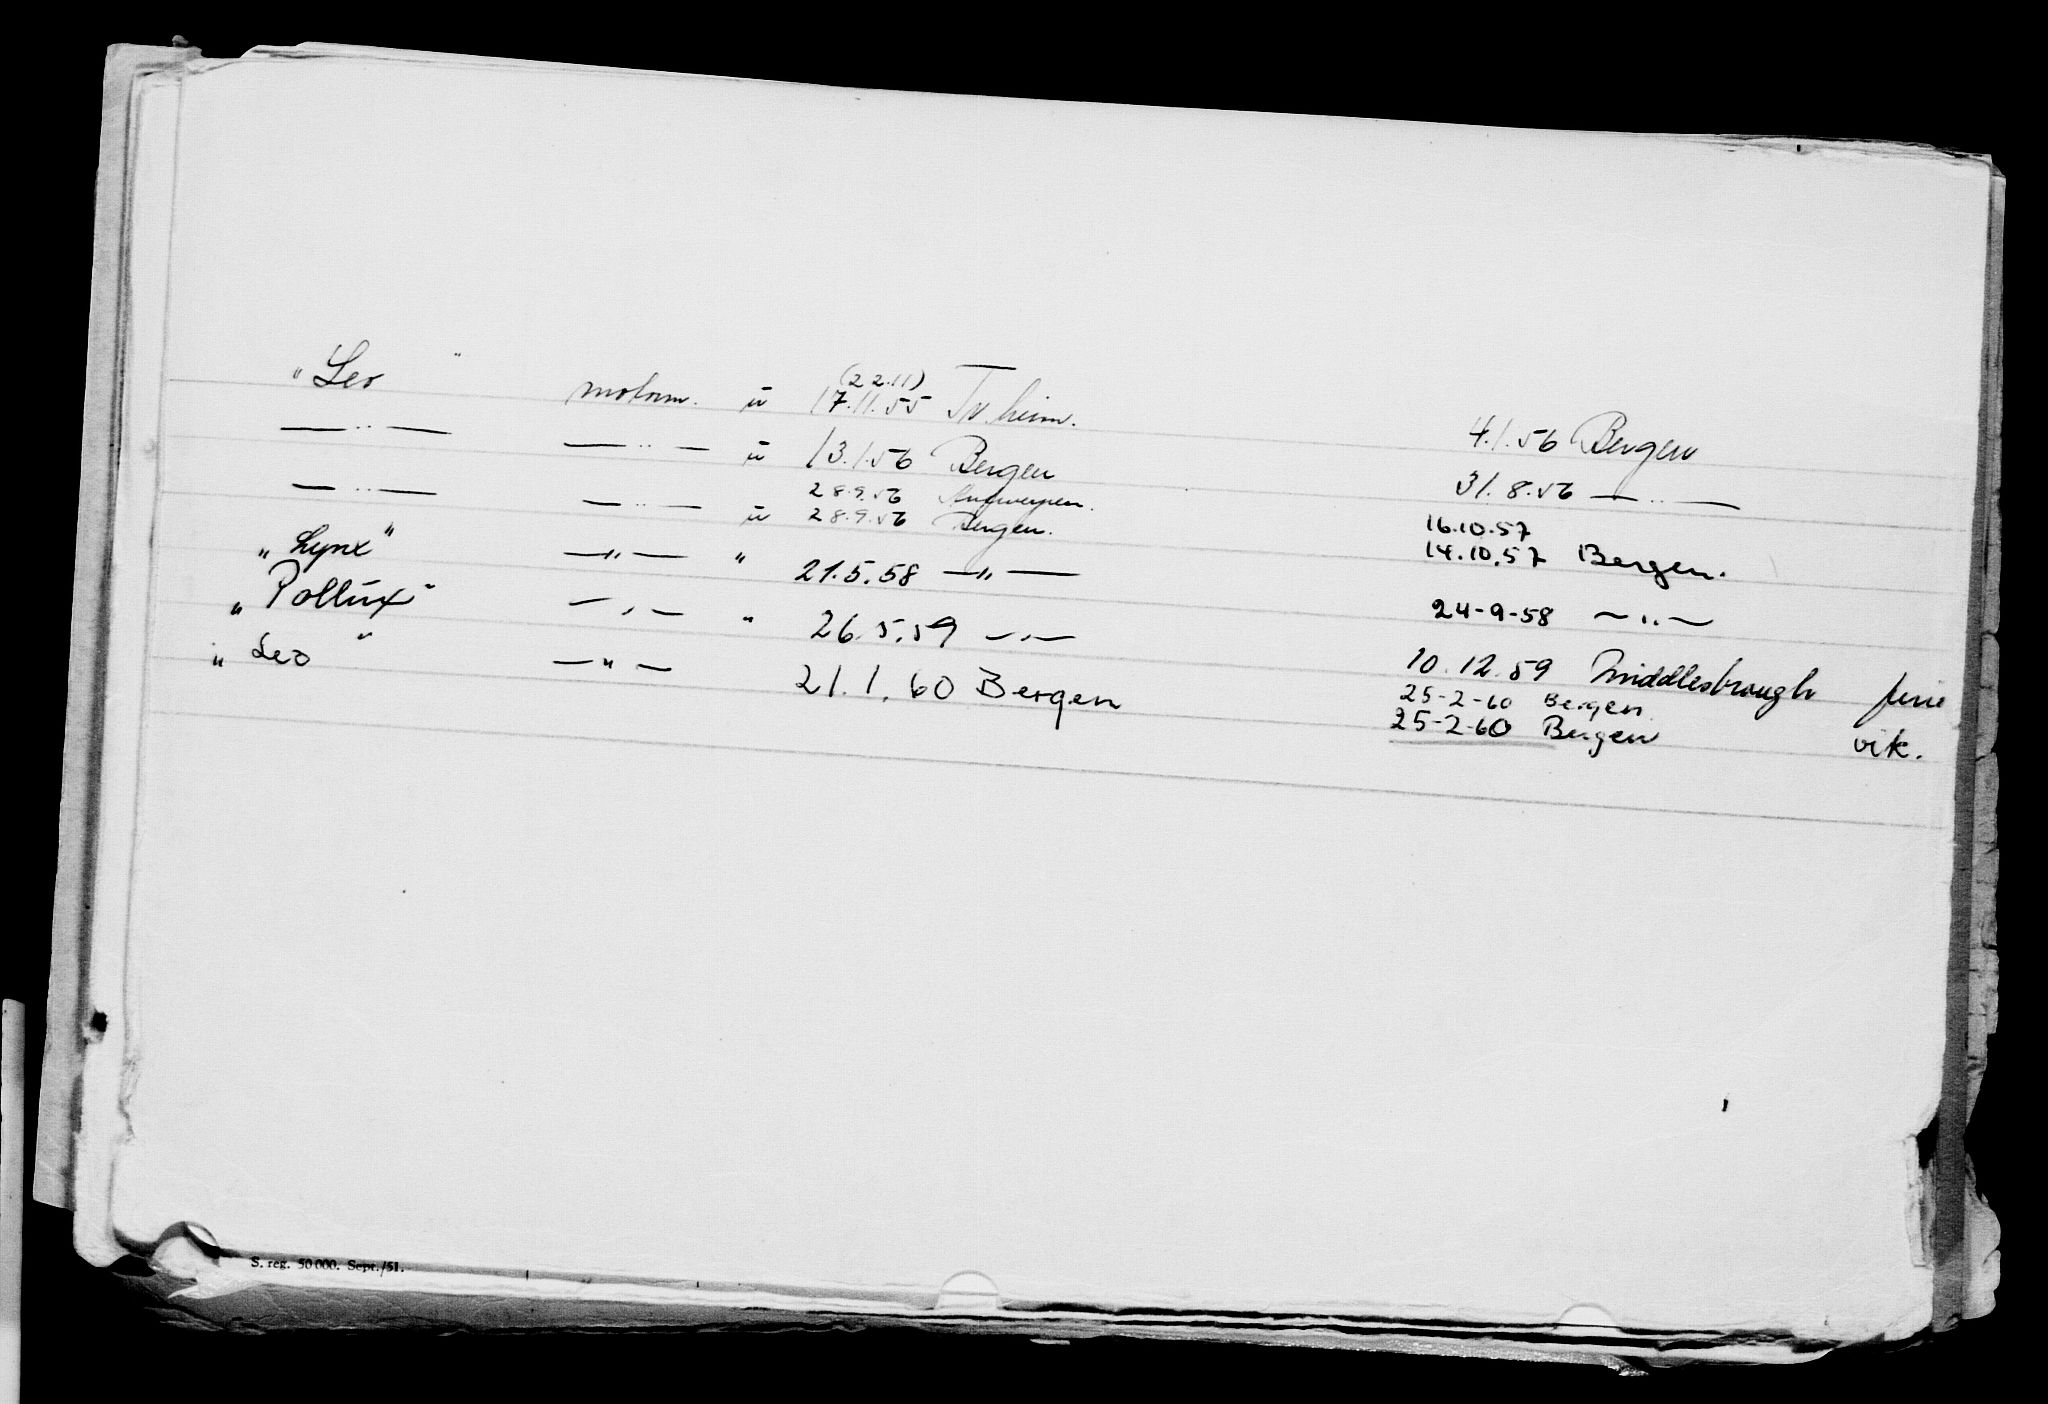 "Leo" motorm. u (22.11) 17.11.55 Tr.heim. 4.1.56 Bergen
—"— —"— u 13.1.56 Bergen 31.8.56 —"—
28.9.56 Antwerpen. 16.10.57
—"— —"— u 28.9.56 Bergen. 14.10.57 Bergen.
"Lynx" —"— " 21.5.58 —"— 24-9-58 —"—
"Pollux" —"— " 26.5.59 —"— 10.12.59 Middlesbrough ferie
25-2-60 Bergen
"Leo" —"— 21.1.60 Bergen 25-2-60 Bergen vik.
S. reg. 50 000. Sept./51.